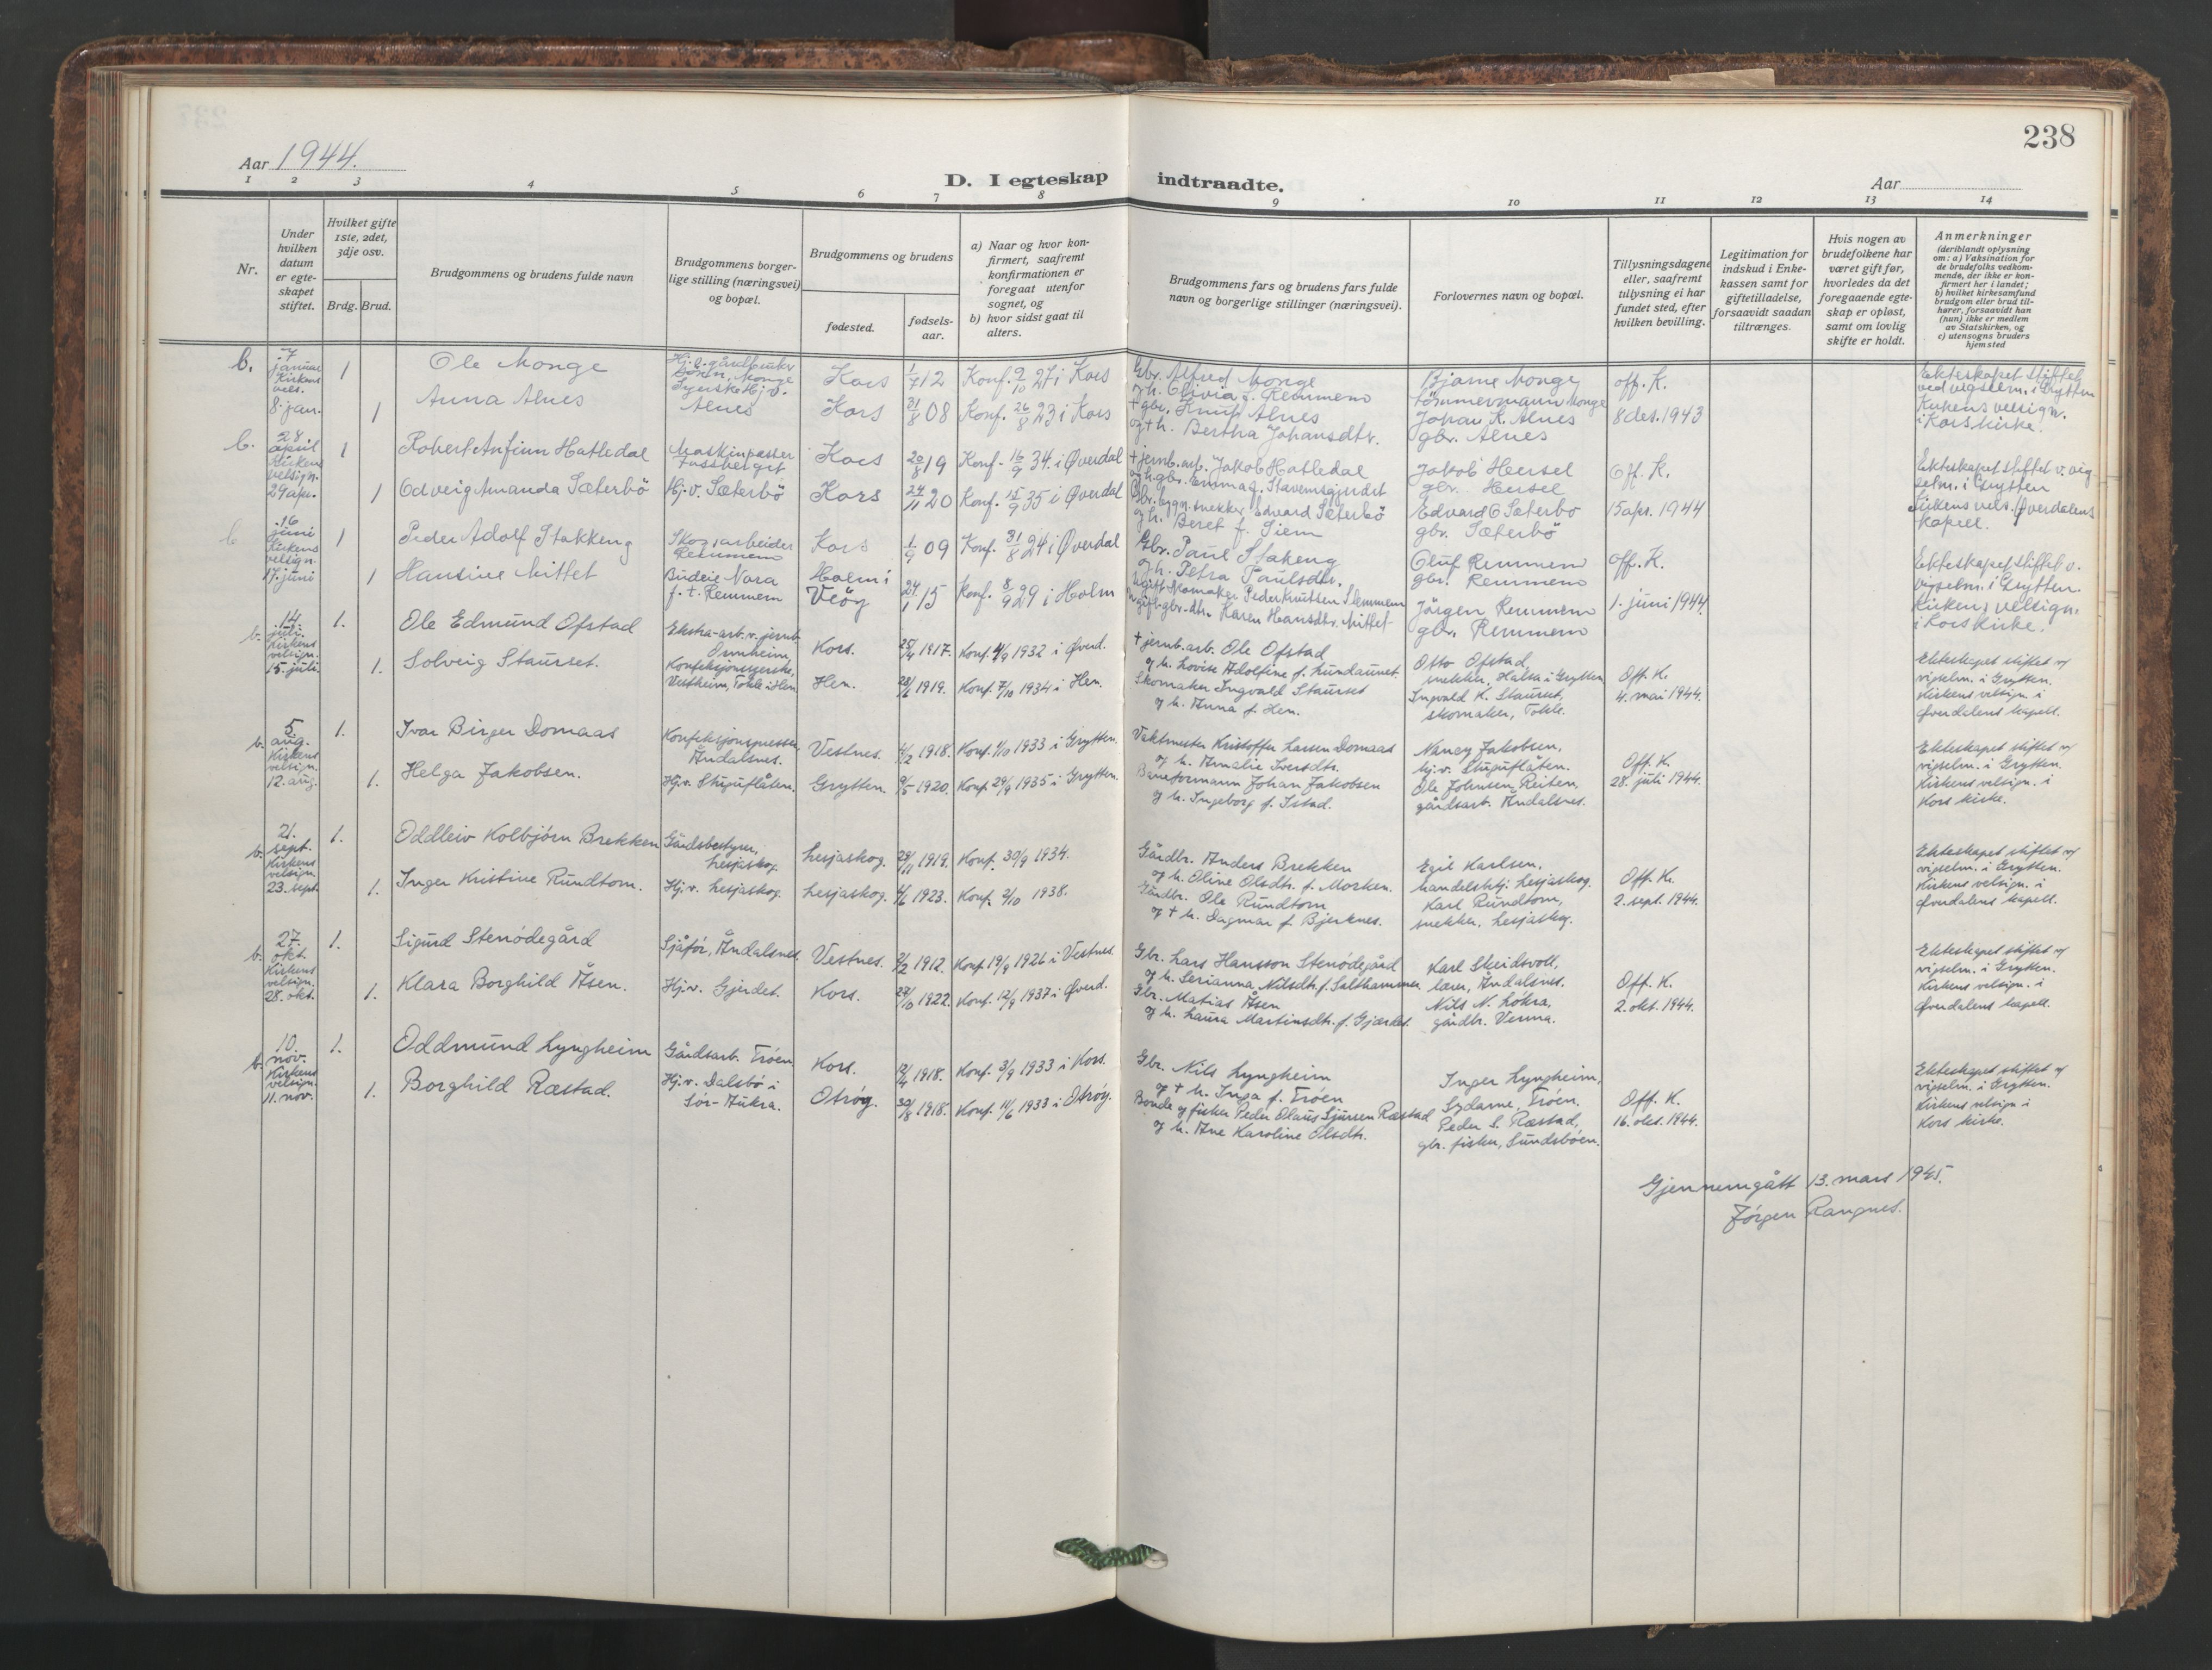 238
Aar 1944.
D. I egteskap indtraadte.
Aar
1 2 3 4 5 6 7 8 9 10 11 12 13 14
Nr.
Under hvilken datum er egteskapet stiftet.
Hvilket gifte 1ste, 2det, 3dje osv.
Brdg. Brud.
Brudgommens og brudens fulde navn
Brudgommens borgerlige stilling (næringsvei) og bopæl.
Brudgommens og brudens
fødested.
fødselsaar.
a) Naar og hvor konfirmert, saafremt konfirmationen er foregaat utenfor sognet, og
b) hvor sidst gaat til alters.
Brudgommens fars og brudens fars fulde navn og borgerlige stillinger (næringsvei).
Forlovernes navn og bopæl.
Tillysningsdagene eller, saafremt tillysning ei har fundet sted, efter hvilken bevilling.
Legitimation for indskud i Enkekassen samt for giftetilladelse, forsaavidt saadan tiltrænges.
Hvis nogen av brudefolkene har været gift før, hvorledes da det foregaaende egteskap er opløst, samt om lovlig skifte er holdt.
Anmerkninger
(deriblandt oplysning om: a) Vaksination for de brudefolks vedkommende, der ikke er konfirmert her i landet;
b) hvilket kirkesamfund brudgom eller brud tilhører, forsaavidt han (hun) ikke er medlem av Statskirken, og
c) utensogns bruders hjemsted
b. 7 januar Kirkens vels. 8. jan.
1 Ole Monge
Kors 1/7 12 Konf. 2/10 27 i Kors
Gbr. Alfred Monge
og h. Olivia f. Remmem
Bjarne Monge
Tömmermann Monge
1 Anna Alnes
Syerske Hj.v. Alnes
Kors 31/8 08 Konf. 26/8 23 i Kors
+ gbr. Knut Alnes
og + h. Bertha Johansdtr.
Johan K. Alnes
gbr. Alnes
off. K.
8 des. 1943
Ekteskapet stiftet
ved vigselm. i Grytten
Kirkens velsign.
i Kors kirke.
b. 28. april Kirkens velsign. 29 apr.
1 Robert Anfinn Hatledal
Maskinpasser
Kors 20/8 19 Konf. 16/9 34. i Øverdal
+ jernb. arb. Jakob Hatledal
Jakob Hersel
gbr. Hersel
1 Odveig Amanda Sæterbö
Hj.v. Sæterbö
Kors 24/11 20 Konf. 15/9 35 i Øverdal
og h. Beret f. Siem
Edvard O Sæterbö
gbr. Sæterbö
Off. K.
15 apr. 1944
Ekteskapet stiftet v. vig
selm. i Grytten
Kirkens vels. Øverdalens
kapell.
b. 16 juni Kirkens velsign. 17. juni
1 Peder Adolf Stakkeng
Skogsarbeider
Remmem
Kors 1/9 09 Konf. 31/8 24 i Øverdal
Gbr. Paul Stakeng
og h. Petra Paulsdtr.
Oluf Remmem
gbr. Remmem
1 Hansine Mittet
Budeie Nora
f. t. Remmem
Holm i
Veöy
24/1 15 Konf. 8/9 29 i Holm
Ugift skomaker Peder Knutsen Slemmem
Ugift gbr. dtr. Karen Hansdtr. Mittet
Jörgen Remmem
gbr. Remmem
Off. K.
1. juni 1944.
Ekteskapet stiftet v.
vigselm. i Grytten.
Kirkens velsign.
i Kors kirke.
b. 14. juli. Kirkens velsign. 15. juli.
1. Ole Edmund Ofstad
Ekstra-arb. v. jernb.
Kors. 25/4 1917. Konf. 4/9 1932 i Øverd.
+ jernb. arb. Ole Ofstad
og h. Lovise Adolfine f. Lundaunet.
Otto Ofstad,
snekker, Halsa i Grytten
1. Solveig Staurset.
Konfeksjonsyerske,
Vestheim, Tokle i Hen
Hen. 28/6 1919. Konf. 7/10 1934 i Hen.
Skomaker Ingvald Staurset
og h. Anna f. Hen.
Ingvald K. Staurset,
skomaker, Tokle.
Off. K.
4. mai 1944.
Ekteskapet stiftet v/
vigselm. i Grytten.
Kirkens velsign. i
Øverdalens kapell.
b. 5. aug. Kirkens velsign. 12. aug.
1. Ivar Birger Domaas
Konfeksjonspresser
Åndalsnes.
Vestnes. 4/2 1918. Konf. 1/10 1933 i Grytten.
Vaktmester Kristoffer Larsen Domaas
og h. Amalie Iversdtr.
Nancy Jakobsen,
hj.v. Stuguflåten.
1. Helga Jakobsen.
Hj.v. Stuguflåten.
Grytten. 9/5 1920. Konf. 29/9 1935 i Grytten.
Baneformann Johan Jakobsen
og h. Ingeborg f. Istad.
Ole Johnsen Reiten,
gårdsarb. Åndalsnes.
Off. K.
28. juli 1944.
Ekteskapet stiftet v/
vigselm. i Grytten.
Kirkens velsign. i
Kors kirke.
b. 21. sept. Kirkens velsign. 23. sept.
1. Oddleiv Kolbjörn Brekken
Gårdsbestyrer,
Lesjaskog.
Lesjaskog. 29/11 1919. Konf. 30/9 1934.
Gårdbr. Anders Brekken
og h. Oline Olsdtr. f. Morken.
Egil Karlsen,
handelsbtj. Lesjaskog.
1. Inger Kristine Rundtom.
Hj.v. Lesjaskog.
Lesjaskog. 4/6 1923. Konf. 2/10 1938.
Gårdbr. Ole Rundtom
og + h. Dagmar f. Bjerknes.
Karl Rundtom,
snekker, Lesjaskog.
Off. K.
2. sept. 1944.
Ekteskapet stiftet v/
vigselm. i Grytten.
Kirkens velsign. i
Øverdalens kapell.
b. 27. okt. Kirkens velsign. 28. okt.
1. Sigurd Stenödegård
Sjåför, Åndalsnes.
Vestnes. 2/2 1912. Konf. 19/9 1926 i Vestnes.
Gbr. Lars Hansson Stenödegård
og h. Serianna Nilsdtr. f. Salthammer
Karl Skeidsvoll,
lærer, Åndalsnes.
1. Klara Borghild Åsen.
Hj.v. Gjerdet.
Kors. 27/10 1922. Konf. 12/9 1937 i Øverd.
Gbr. Matias Åsen
og h. Laura Martinsdtr. f. Gjærdet.
Nils N. Lökra,
gårdbr. Verma.
Off. K.
2. okt. 1944.
Ekteskapet stiftet v/
vigselm. i Grytten.
Kirkens velsign. i
Øverdalens kapell.
b. 10. nov. Kirkens velsign. 11. nov.
1. Oddmund Lyngheim
Gårdsarb. Tröen.
Kors. 12/4 1918. Konf. 3/9 1933 i Kors.
Gbr. Nils Lyngheim
og + h. Inga f. Tröen
Inger Lyngheim,
Sydame, Tröen.
1. Borghild Ræstad.
Hj.v. Dalsbö i
Sör-Aukra.
Otröy. 30/8 1918. Konf. 11/6 1933 i Otröy.
Bonde og fisker Peder Olaus Sjursen Ræstad
og h. Ane Karoline Olsdtr.
Peder S. Ræstad,
gbr. fisker, Sundsböen.
Off. K.
16. okt. 1944.
Ekteskapet stiftet v/
vigselm. i Grytten.
Kirkens velsign i
Kors kirke.
Gjennemgått 13. mars 1945.
Jörgen Rangnes.